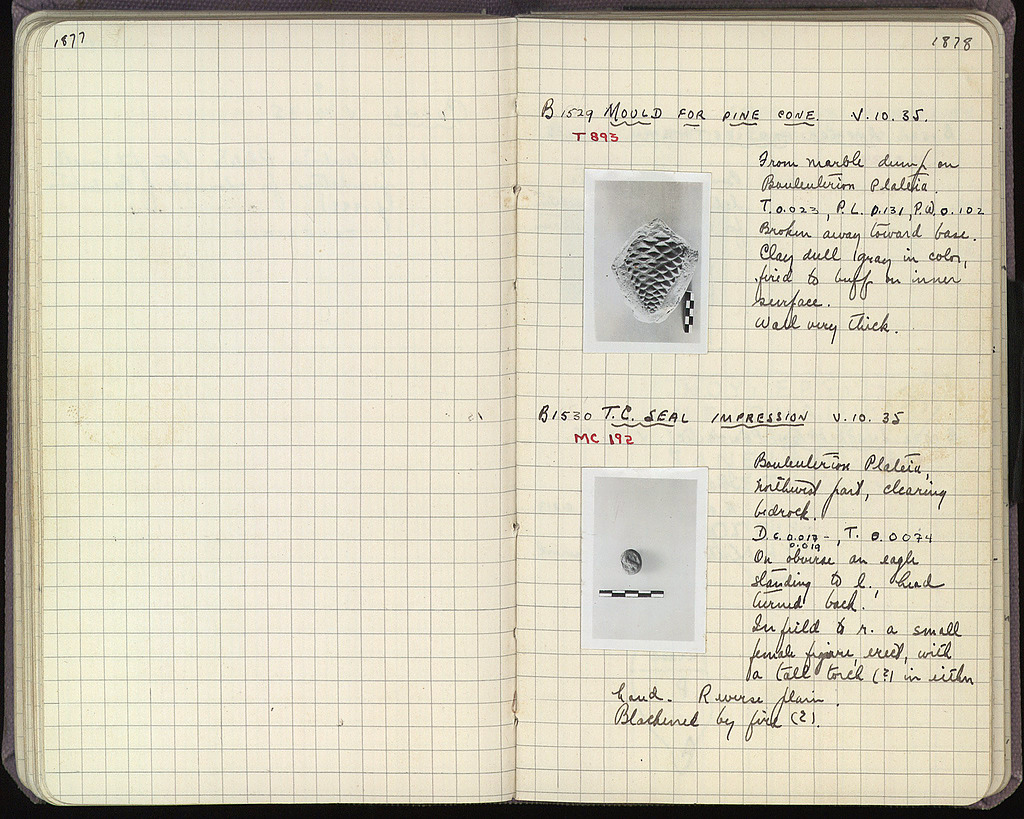 1877
1878
B 1529 MOULD FOR PINE CONE. V.10.35.
T 893
From marble dump on
Bouleuterion Plateia.
T. 0.023, P.L. 0.131, P.W. 0.102
Broken away toward base.
Clay dull gray in color,
fired to buff on inner
surface.
Wall very thick.
B 1530 T.C. SEAL IMPRESSION V.10.35
MC 192
Bouleuterion Plateia,
northwest part, clearing
bedrock.
D. c. 0.017-, T. 0.0074
0.019
On obverse an eagle
standing to l., head
turned back.
In field to r. a small
female figure, erect, with
a tall torch (?) in either
hand. Reverse plain.
Blackened by fire (?).